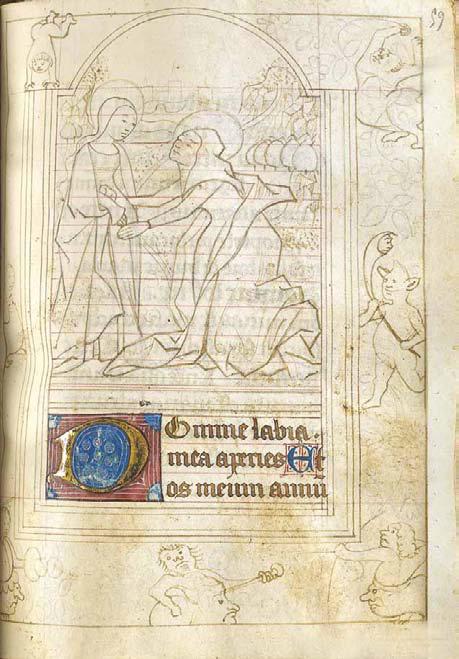 59
Domine labia.
mea aperies Et
os meum annū